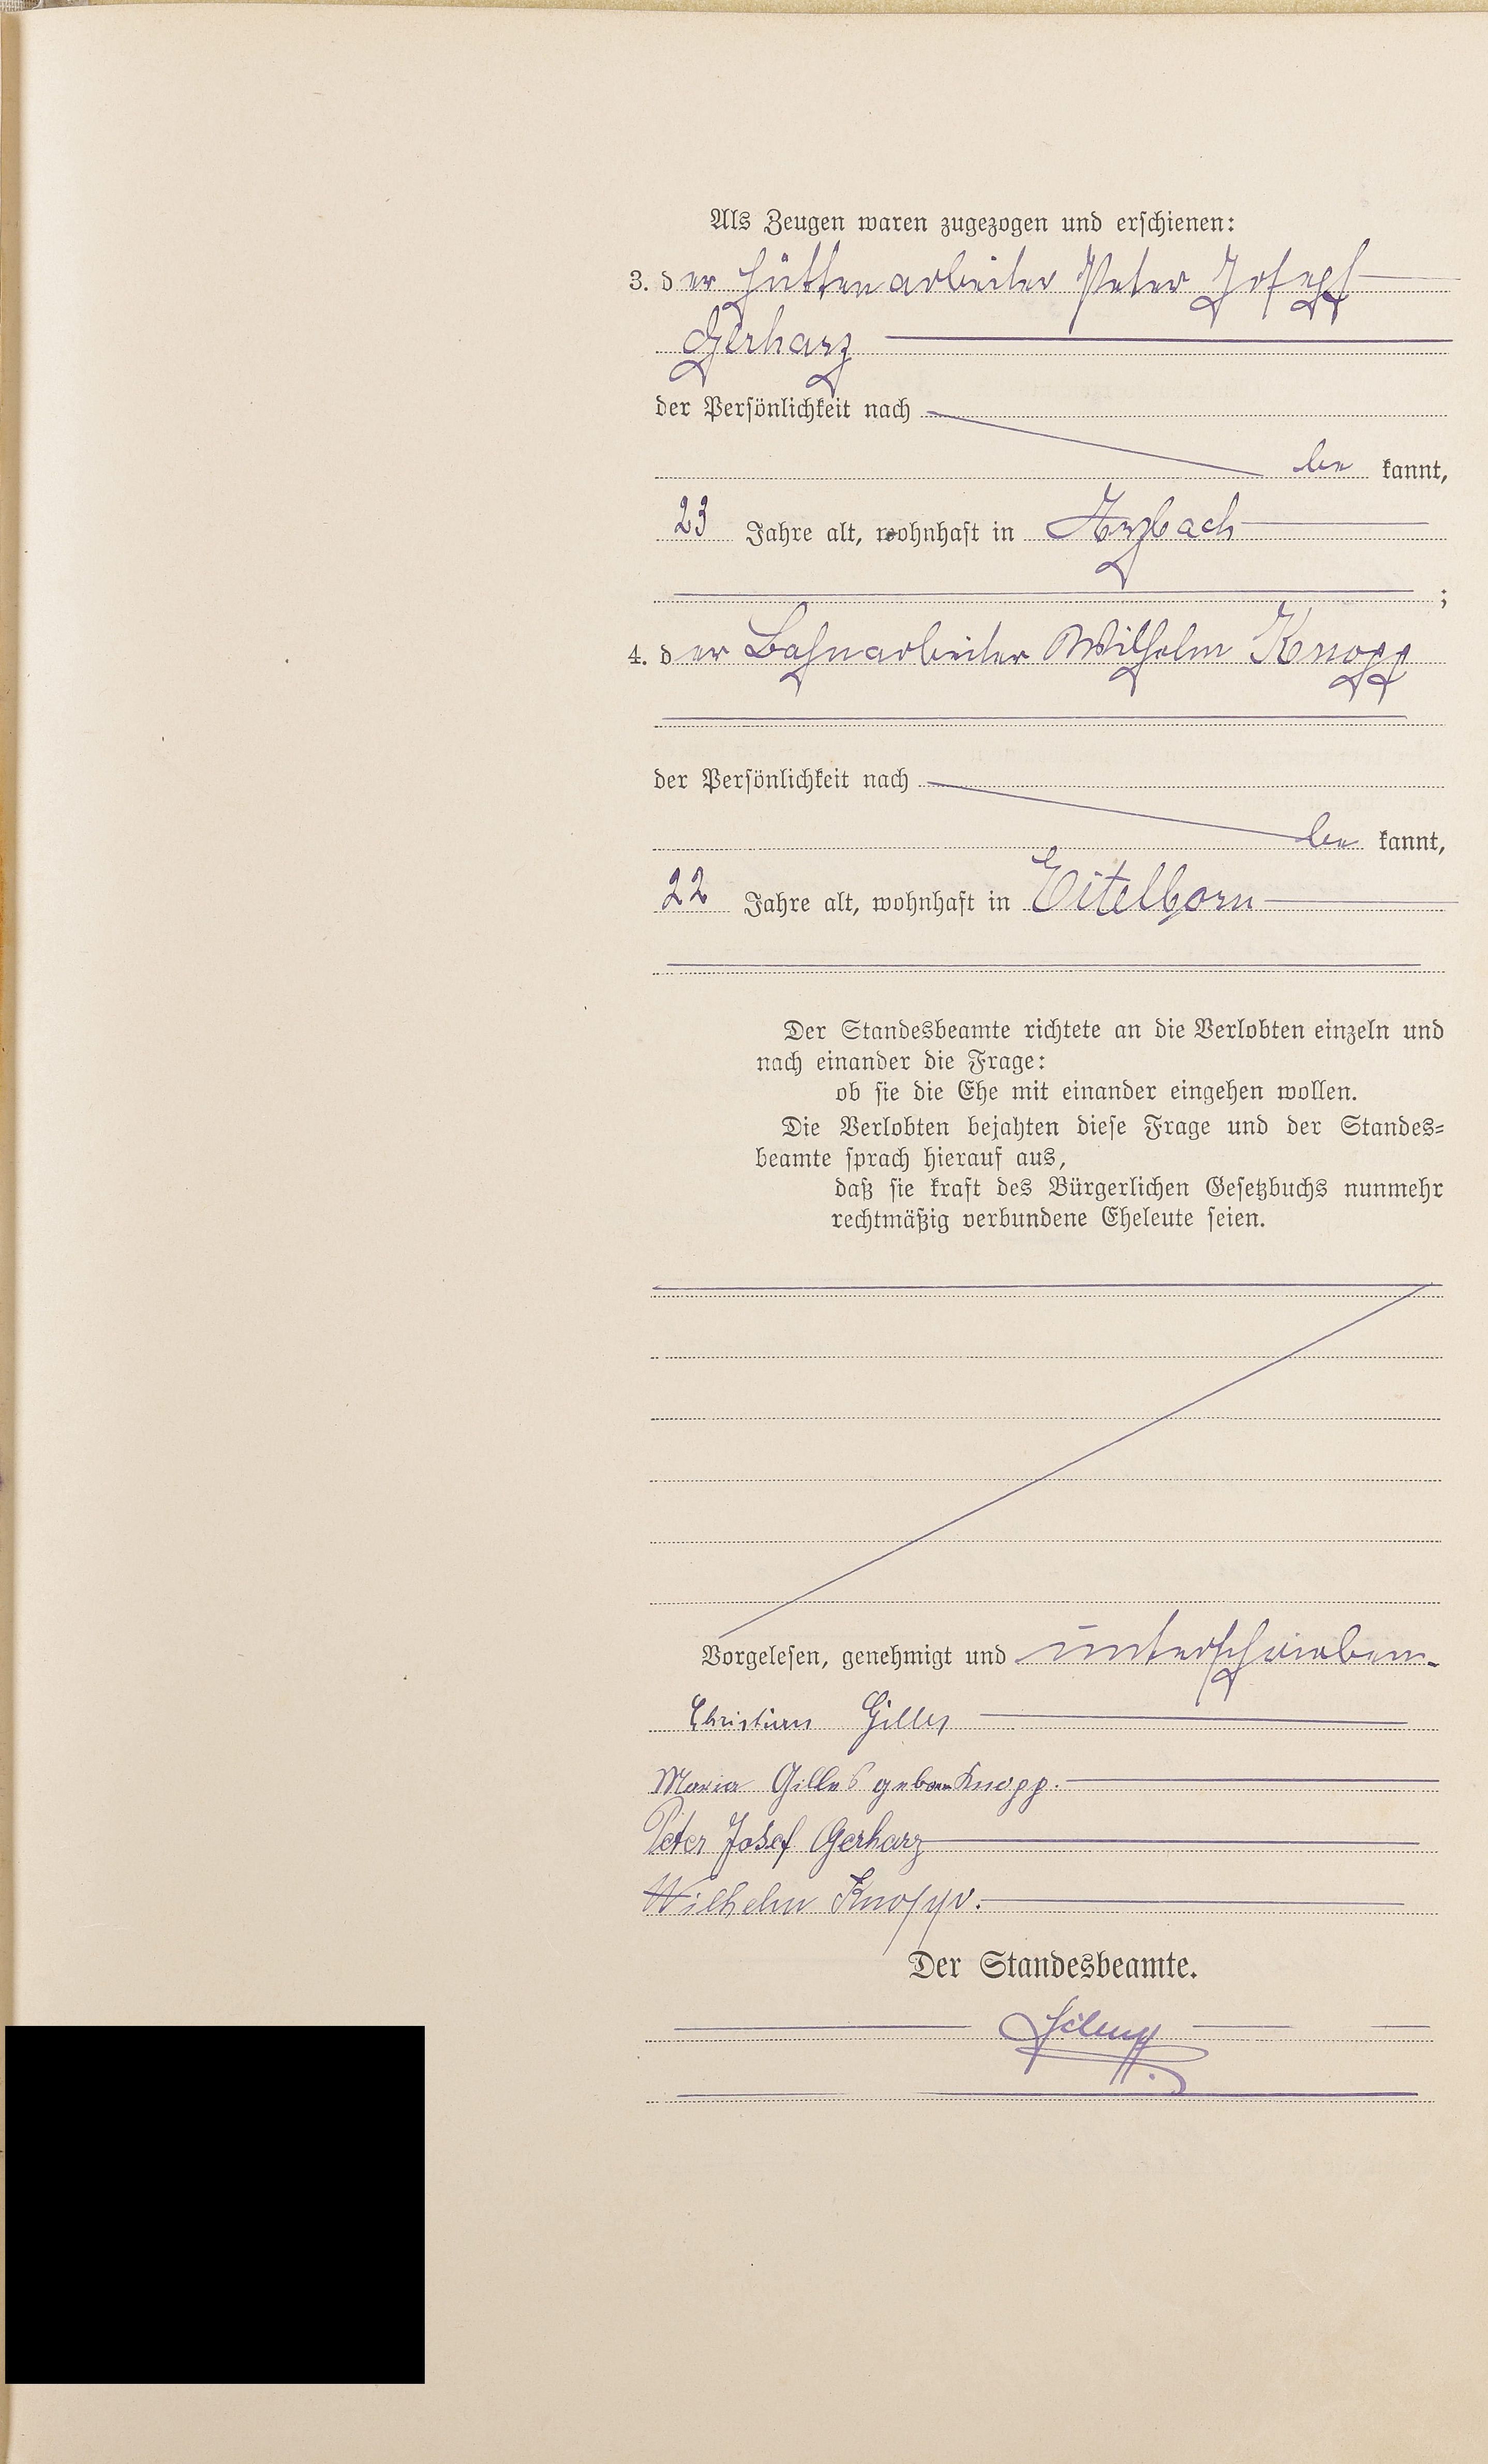 Als Zeugen waren zugezogen und erschienen:
3. der Hüttenarbeiter Peter Joseph
Gerharz
der Persönlichkeit nach
be kannt,
23 Jahre alt, wohnhaft in Arzbach
;
4. der Bahnarbeiter Wilhelm Knopp
der Persönlichkeit nach
be kannt,
22 Jahre alt, wohnhaft in Eitelborn
Der Standesbeamte richtete an die Verlobten einzeln und
nach einander die Frage:
ob sie die Ehe mit einander eingehen wollen.
Die Verlobten bejahten diese Frage und der Standes-
beamte sprach hierauf aus,
daß sie kraft des Bürgerlichen Gesetzbuchs nunmehr
rechtmäßig verbundene Eheleute seien.
Vorgelesen, genehmigt und unterschrieben.
Christian Gilles
Maria Gilles geboren Knopp.
Peter Josef Gerharz
Wilhelm Knopp.
Der Standesbeamte.